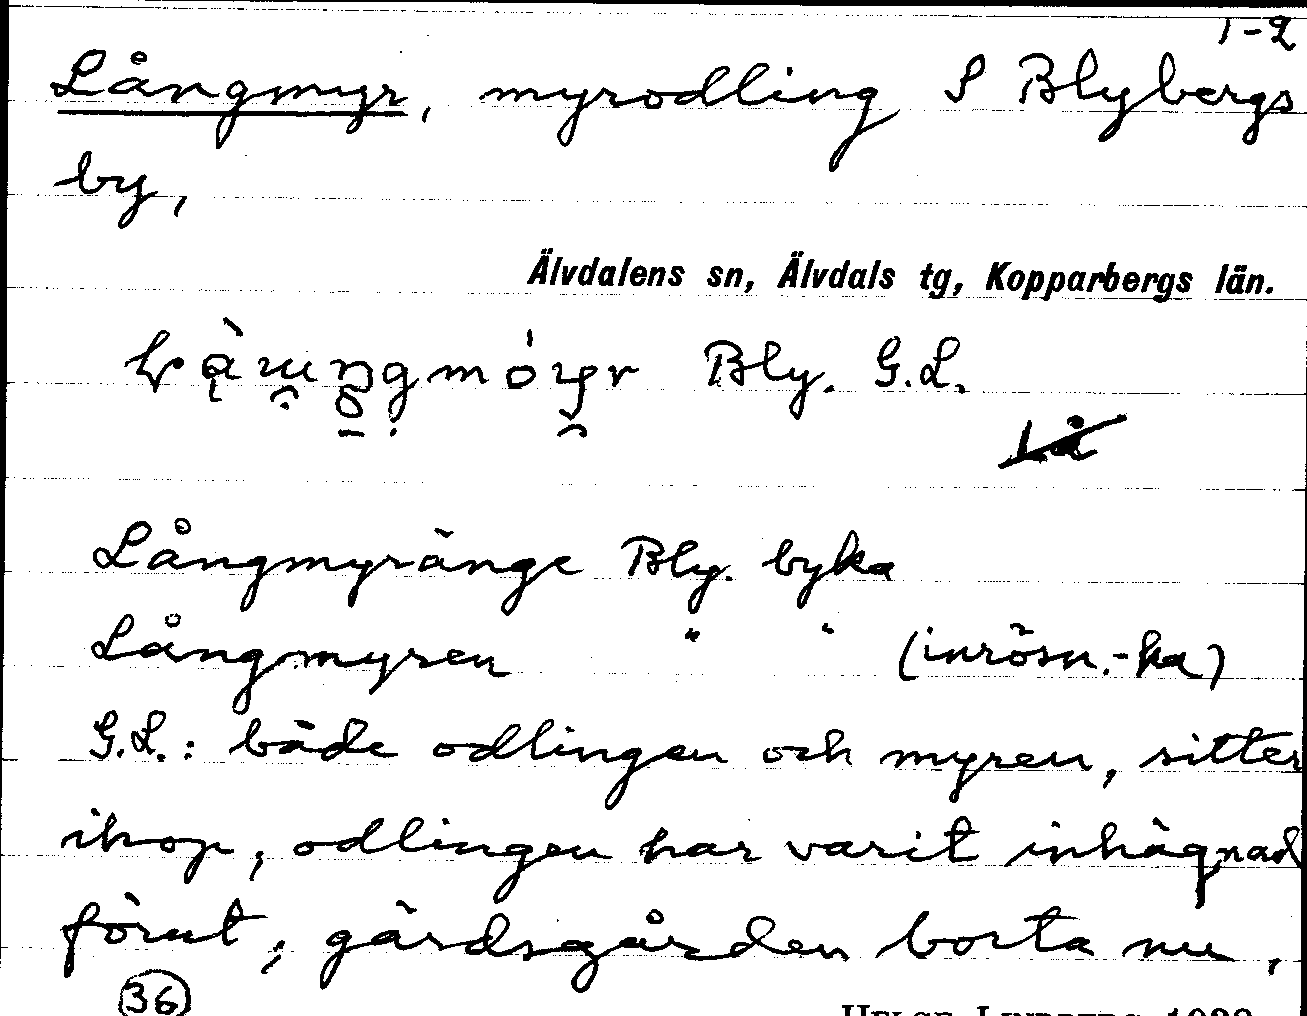 1-2
Långmyr, myrodling S Blybergs
by,
Älvdalens sn, Älvdals tg, Kopparbergs län.
Bly. G.L.
Lå
Långmyränge Bly. byka
Långmyren " " (inrösn.-ka)
G.L.: både odlingen och myren, sitter
ihop, odlingen har varit inhägnad
förut, gärdsgården borta nu,
36